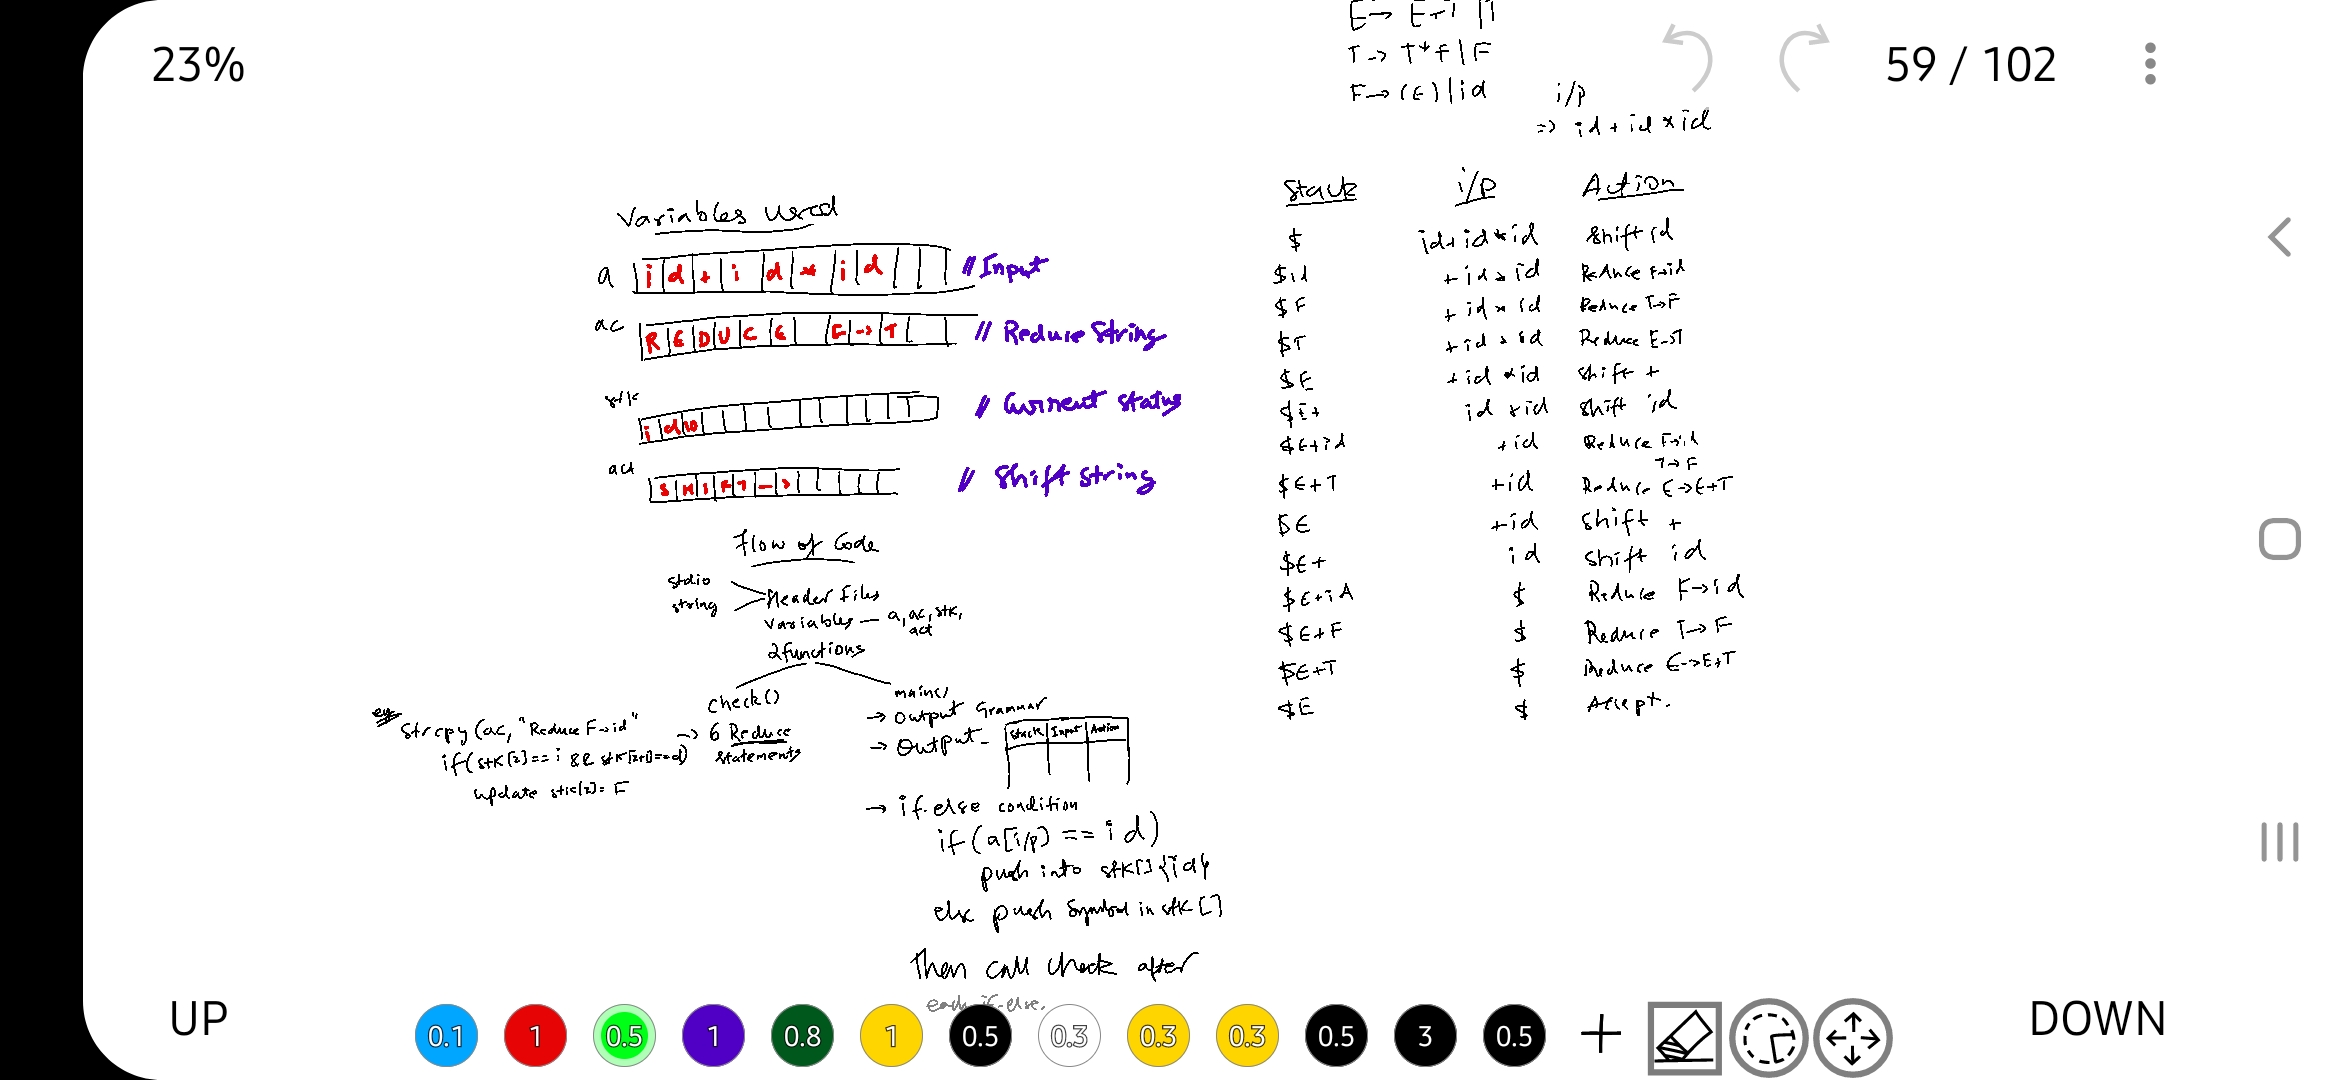 23%
59 / 102
T -> T*F | F
F -> (E) | id
i/p
=> id + id * id
Variables used
a i d + i d * i d // Input
ac R E D U C E E -> T // Reduce String
stk i d \0 // Current status
act S H I F T -> // Shift string
Flow of Code
stdio
string
Header Files
Variables — a, ac, stk,
act
2 functions
check()
-> 6 Reduce
statements
eg
Strcpy (ac, "Reduce F->id"
if(stk[z]== i && stk[z+1]==d)
update stk[z]= F
main()
-> Output Grammar
-> Output -
Stack Input Action
-> if-else condition
if (a[i/p] == id)
push into stk[] {id}
else push Symbol in stk []
Then call check after
each if-else.
Stack i/p Action
$ id+id*id Shift id
$id +id*id Reduce F->id
$F +id*id Reduce T->F
$T +id*id Reduce E->T
$E +id*id Shift +
$E+ id*id Shift id
$E+id +id Reduce F->id
T->F
$E+T +id Reduce E->E+T
$E +id Shift +
$E+ id Shift id
$E+id $ Reduce F->id
$E+F $ Reduce T->F
$E+T $ Reduce E->E+T
$E $ Accept.
UP
0.1 1 0.5 1 0.8 1 0.5 0.3 0.3 0.3 0.5 3 0.5 +
DOWN